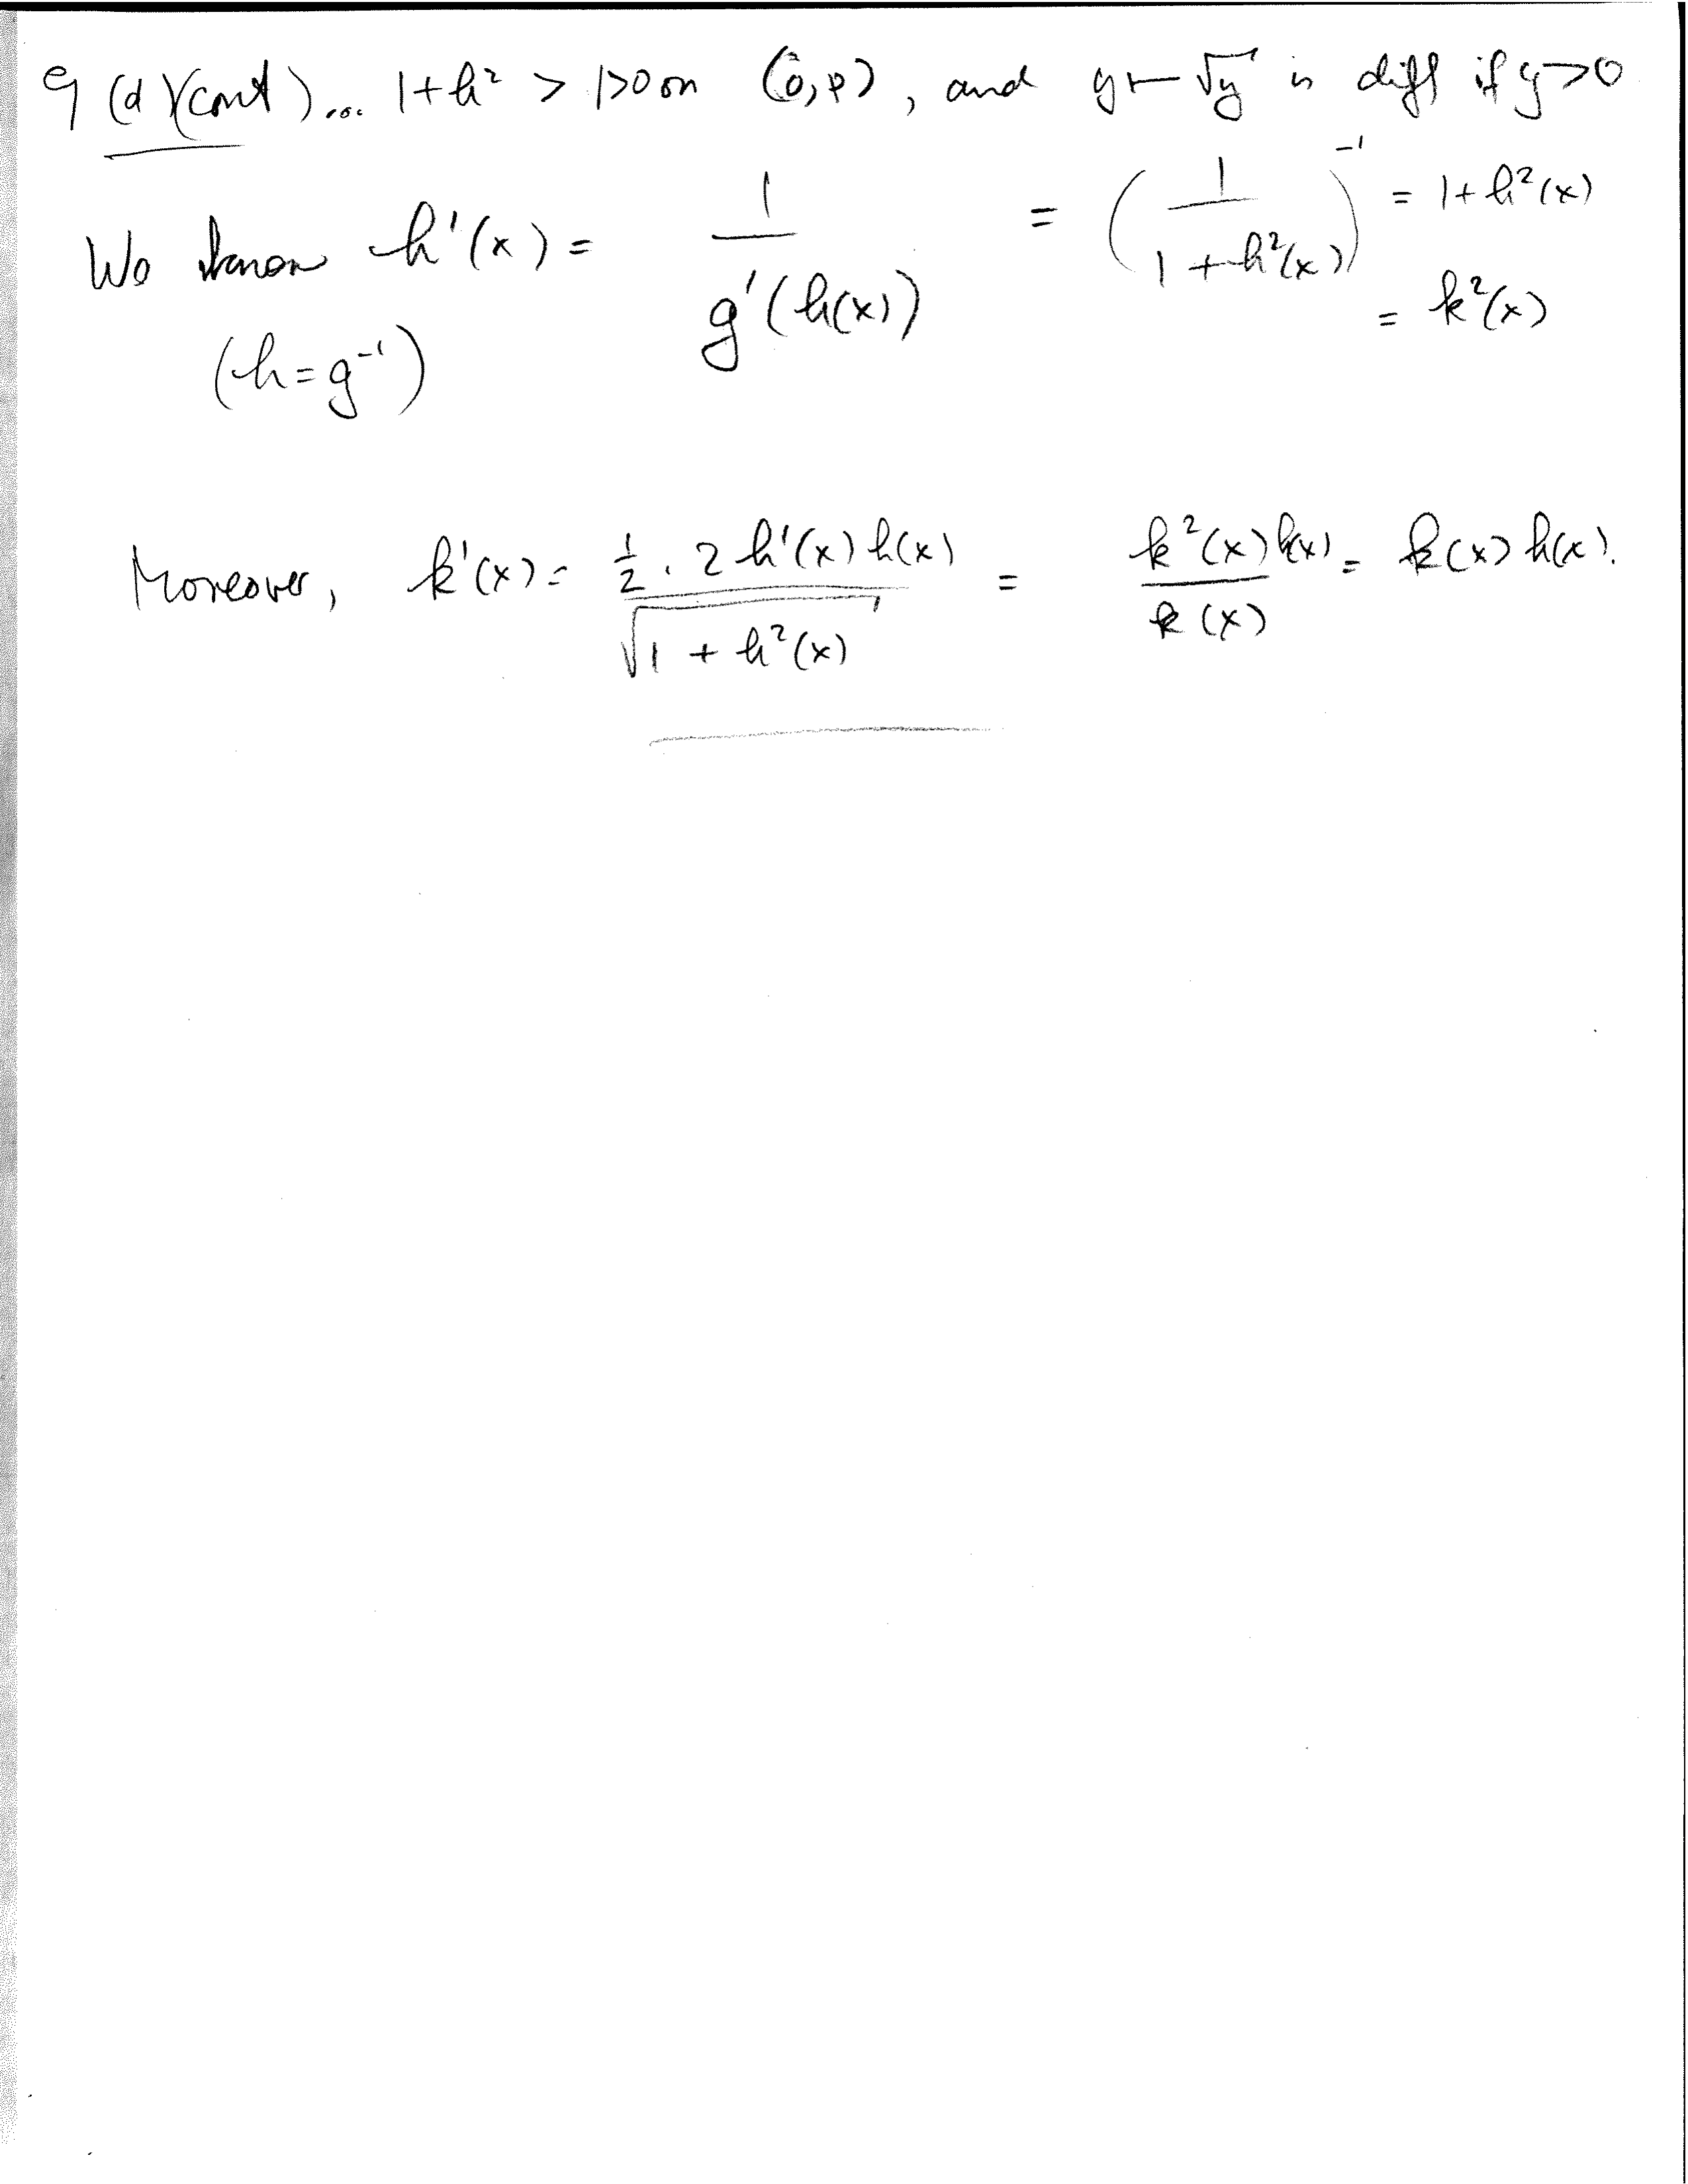 9 (d)(cont)... 1+h² > 1>0 on (0,p), and y ↦ √y is diff if y>0
We know h'(x) = 1 / g'(h(x)) = (1 / (1+h²(x)))⁻¹ = 1+h²(x)
(h=g⁻¹) = k²(x)
Moreover, k'(x) = ½ · 2 h'(x) h(x) / √(1 + h²(x)) = k²(x) h(x) / k(x) = k(x) h(x).